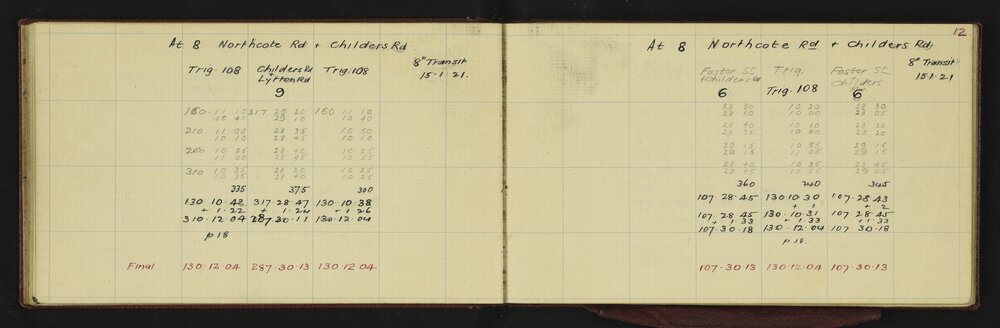 At 8 Northcote Rd. + Childers Rd
Trig. 108 Childers Rd Trig. 108 8" Transit
Lytton Rd 15.1.21.
9
160 11 10 317 29 20 160 11 10
10 40 29 10 10 40
210 11 00 28 35 10 50
10 10 28 45 10 10
260 10 25 28 40 10 25
11 00 28 45 10 55
310 10 35 28 20 10 25
10 35 28 40 10 25
335 375 300
130.10.48 317.28.47 130.10.38
+ 1.22 + 1.24 + 1 26
310.12.04 30.11 130.12.04
p18
Final 130.12.04 287.30.13 130.12.04
12
At 8 Northcote Rd + Childers Rd
Foster St Trig. Foster St 8" Transit
+ Childers Rd Childers 15.1.21
6 Trig. 108 6
28 30 10 20 28 30
28 10 10 00 28 05
28 40 10 10 28 30
28 35 10 00 28 20
29 15 10 55 29 15
29 15 11 05 29 15
28 40 10 35 28 45
28 55 10 25 28 55
360 240 345
107.28.45 130.10.30 107.28.43
+ 1 + 2
107.28.45 130.10.31 107.28.45
+ 1 33 + 1 33 + 1 33
107.30.18 130.12.04 107.30.18
p18.
107.30.13 130.12.04 107.30.13